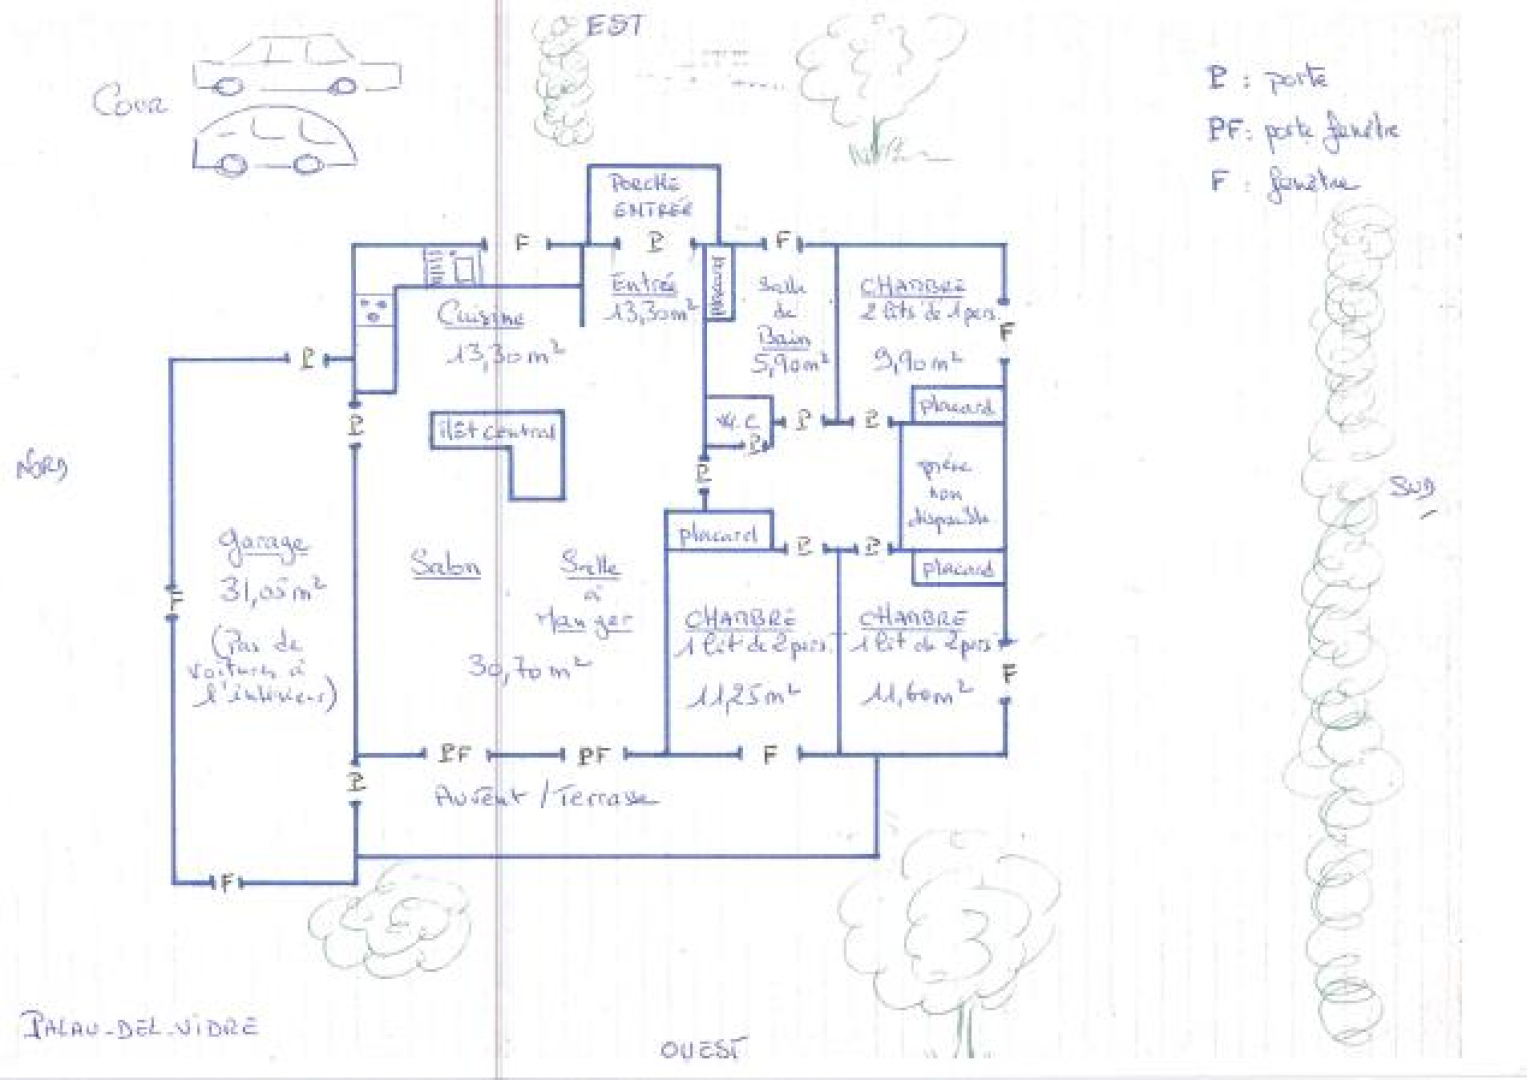 EST
Cour
P : porte
PF: porte fenêtre
F : fenêtre
PORCHE
ENTRÉE
F
P
F
placard
Entrée
13,30m²
Salle
de
Bain
5,90m²
CHAMBRE
2 lits de 1 pers.
9,90m²
F
Cuisine
13,30m²
P
P
placard
W.C
P
P
P
P
îlot central
NORD
pièce
non
disponible
SUD
Garage
31,05m²
(Pas de
voitures à
l'intérieur)
F
Salon
Salle
à
Manger
30,70m²
placard
P
P
placard
CHAMBRE
1 lit de 2 pers.
11,25m²
CHAMBRE
1 lit de 2 pers
11,60m²
F
PF
PF
F
P
Auvent / Terrasse
F
PALAU-DEL-VIDRE
OUEST